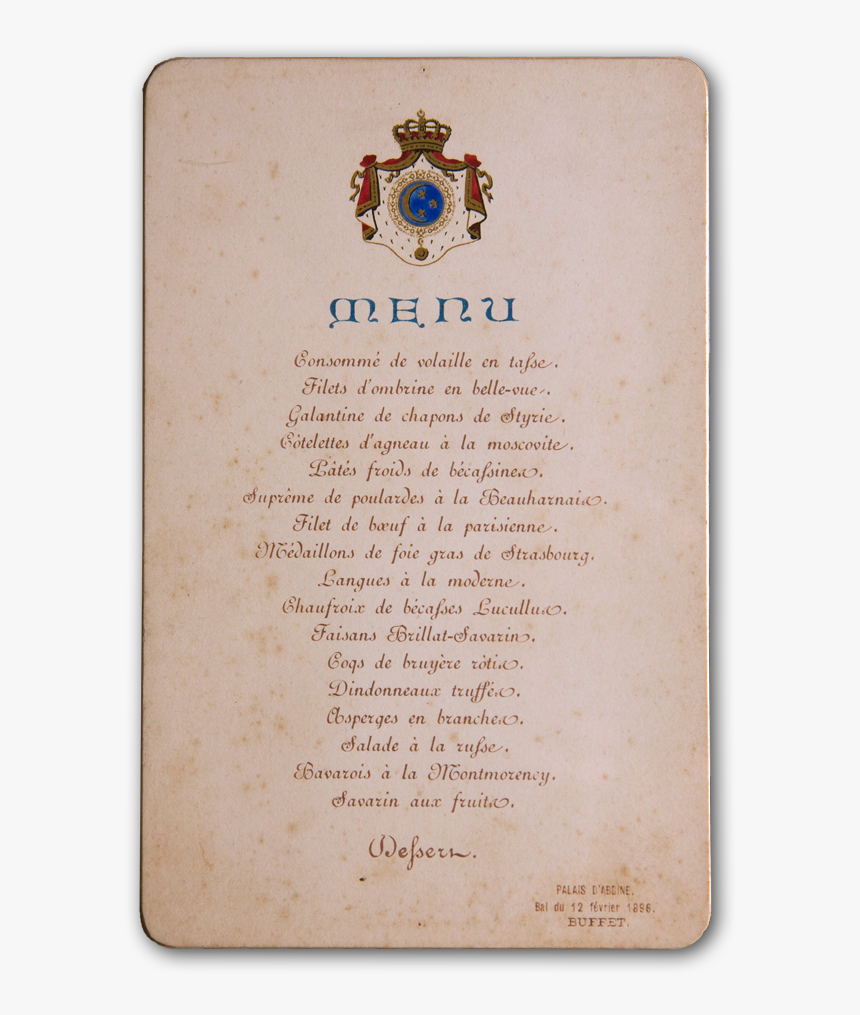 MENU
Consommé de volaille en tasse.
Filets d'ombrine en belle-vue.
Galantine de chapons de Styrie.
Côtelettes d'agneau à la moscovite.
Pâtés froids de bécassines.
Suprême de poulardes à la Beauharnais.
Filet de bœuf à la parisienne.
Médaillons de foie gras de Strasbourg.
Langues à la moderne.
Chaufroix de bécasses Lucullus.
Faisans Brillat-Savarin.
Coqs de bruyère rôtis.
Dindonneaux truffés.
Asperges en branches.
Salade à la russe.
Bavarois à la Montmorency.
Savarin aux fruits.
Dessert.
PALAIS D'ABDINE.
Bal du 12 février 1896.
BUFFET.